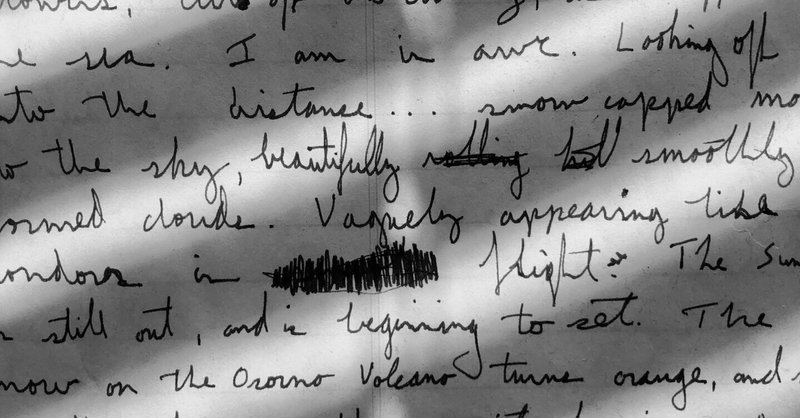 sea. I am in awe. Looking off
the distance... snow capped
the sky, beautifully rolling smoothly
clouds. Vaguely appearing like
in flight. The Sun
still out, and is beginning to set. The
on the Osorno Volcano turns orange, and